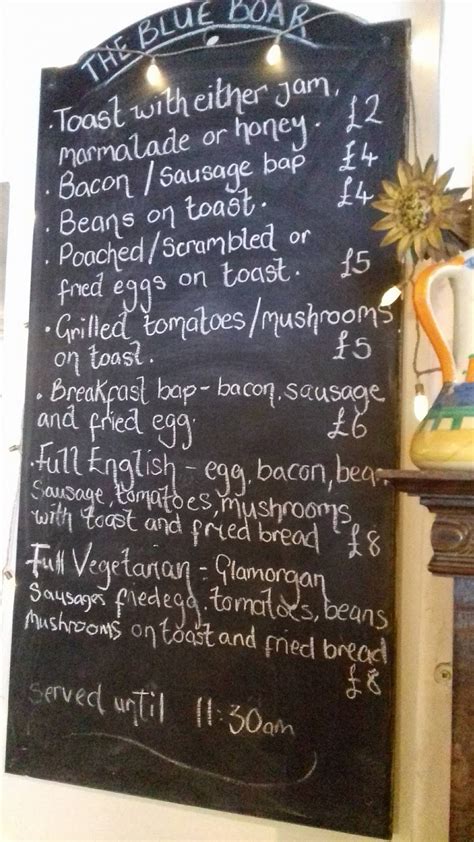 THE BLUE BOAR
· Toast with either jam,
marmalade or honey. £2
· Bacon / Sausage bap £4
· Beans on toast. £4
· Poached/Scrambled or
fried eggs on toast. £5
· Grilled tomatoes/mushrooms
on toast. £5
· Breakfast bap - bacon, sausage
and fried egg. £6
· Full English - egg, bacon, bea
Sausage, tomatoes, mushrooms,
with toast and fried bread £8
Full Vegetarian - Glamorgan
Sausages fried egg, tomatoes, beans
Mushrooms on toast and fried bread
£8
served until 11:30am